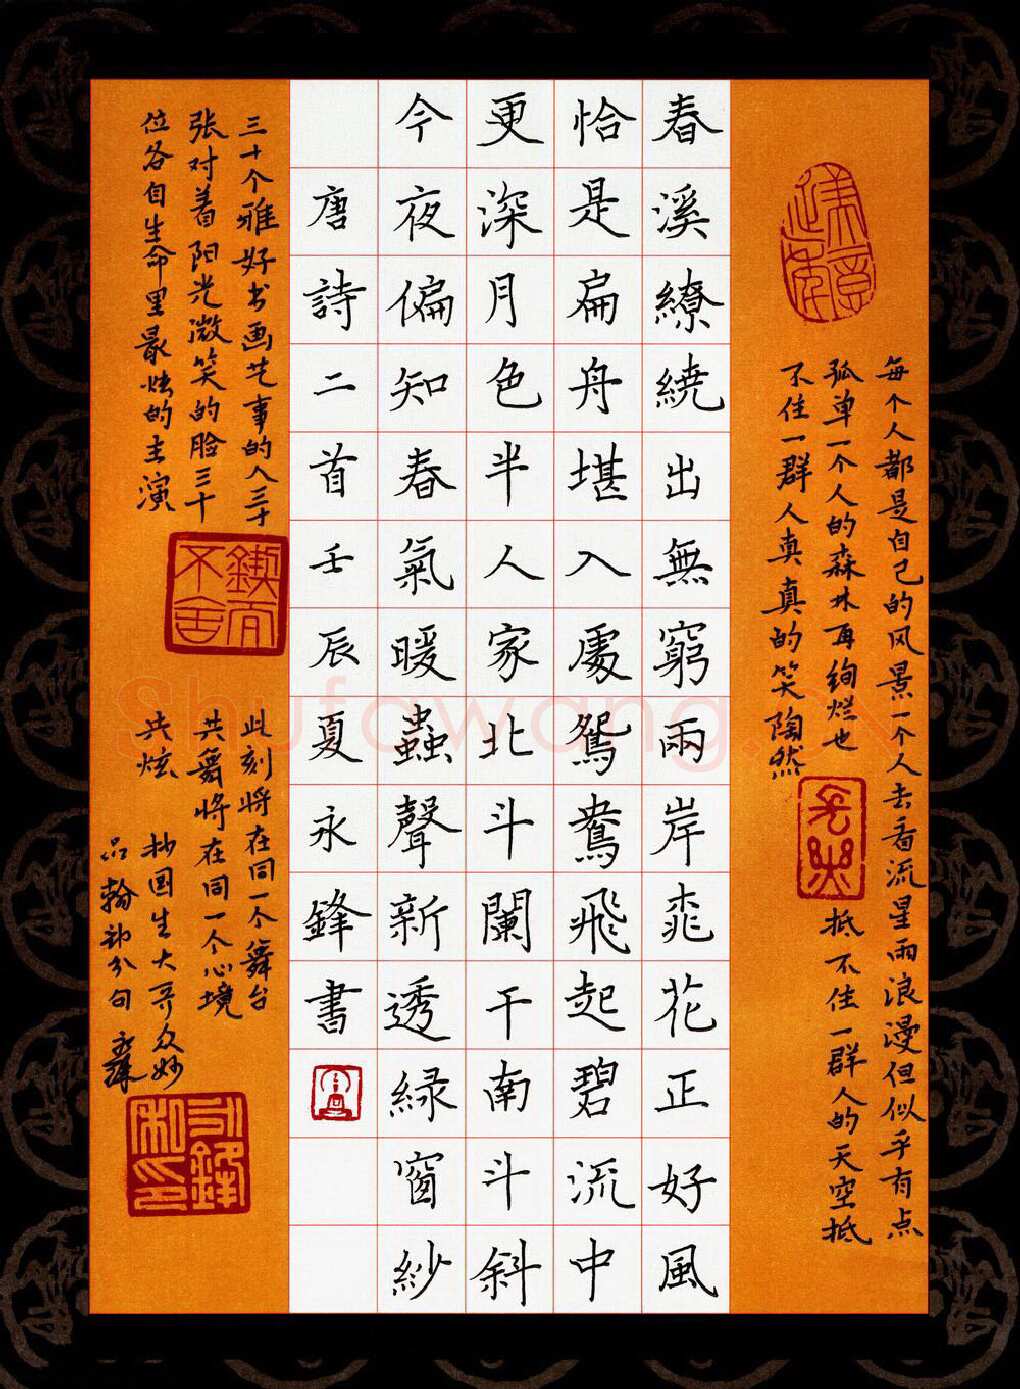 每个人都是自己的风景一个人去看流星雨浪漫但似乎有点
孤单一个人的森林再绚烂也
抵不住一群人的天空抵
不住一群人真真的笑陶然
春溪繚繞出無窮兩岸桃花正好風
恰是扁舟堪入處鴛鴦飛起碧流中
更深月色半人家北斗闌干南斗斜
今夜偏知春氣暖蟲聲新透緑窗紗
唐詩二首壬辰夏永鋒書
三十个雅好书画艺事的人三十
张对着阳光微笑的脸三十
位各自生命里最炫的主演
鍥而不舍
此刻将在同一个舞台
共舞将在同一个心境
共炫
抄国生大哥众妙
品翰部分句
Shufawang.CN